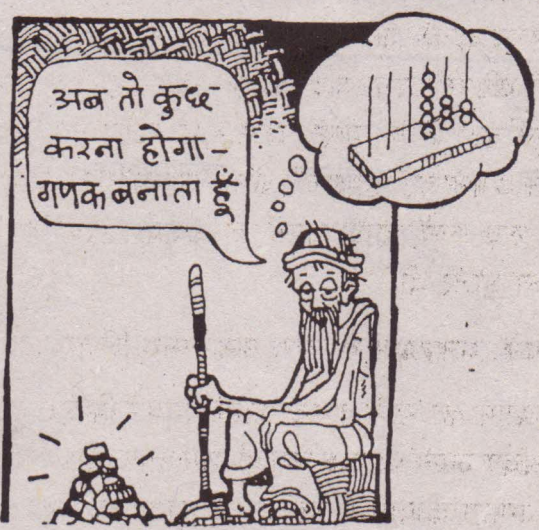 अब तो कुछ
करना होगा –
गणक बनाता हूँ